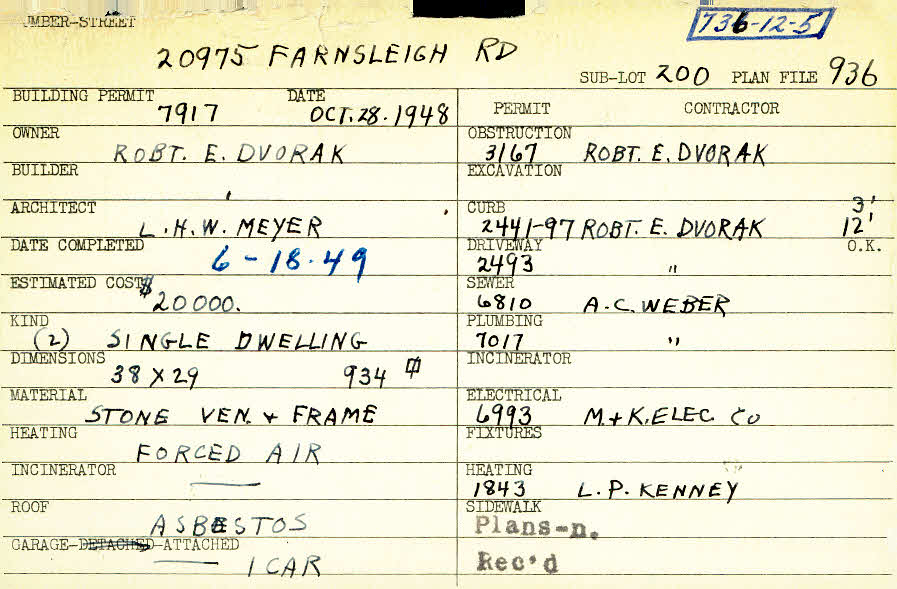 UMBER-STREET
736-12-5
20975 FARNSLEIGH RD
SUB-LOT 200 PLAN FILE 936
BUILDING PERMIT DATE
7917 OCT. 28. 1948
OWNER
ROBT. E. DVORAK
BUILDER
ARCHITECT
L. H. W. MEYER
DATE COMPLETED
6-18-49
ESTIMATED COST
$20000.
KIND
(2) SINGLE DWELLING
DIMENSIONS
38 X 29 934
MATERIAL
STONE VEN. + FRAME
HEATING
FORCED AIR
INCINERATOR
ROOF
ASBESTOS
GARAGE-DETACHED-ATTACHED
1 CAR
PERMIT CONTRACTOR
OBSTRUCTION
3167 ROBT. E. DVORAK
EXCAVATION
CURB 3'
2441-97 ROBT. E. DVORAK 12'
DRIVEWAY O.K.
2493 "
SEWER
6810 A.C. WEBER
PLUMBING
7017 "
INCINERATOR
ELECTRICAL
6993 M.+K. ELEC CO
FIXTURES
HEATING
1843 L. P. KENNEY
SIDEWALK
Plans-n.
Rec'd